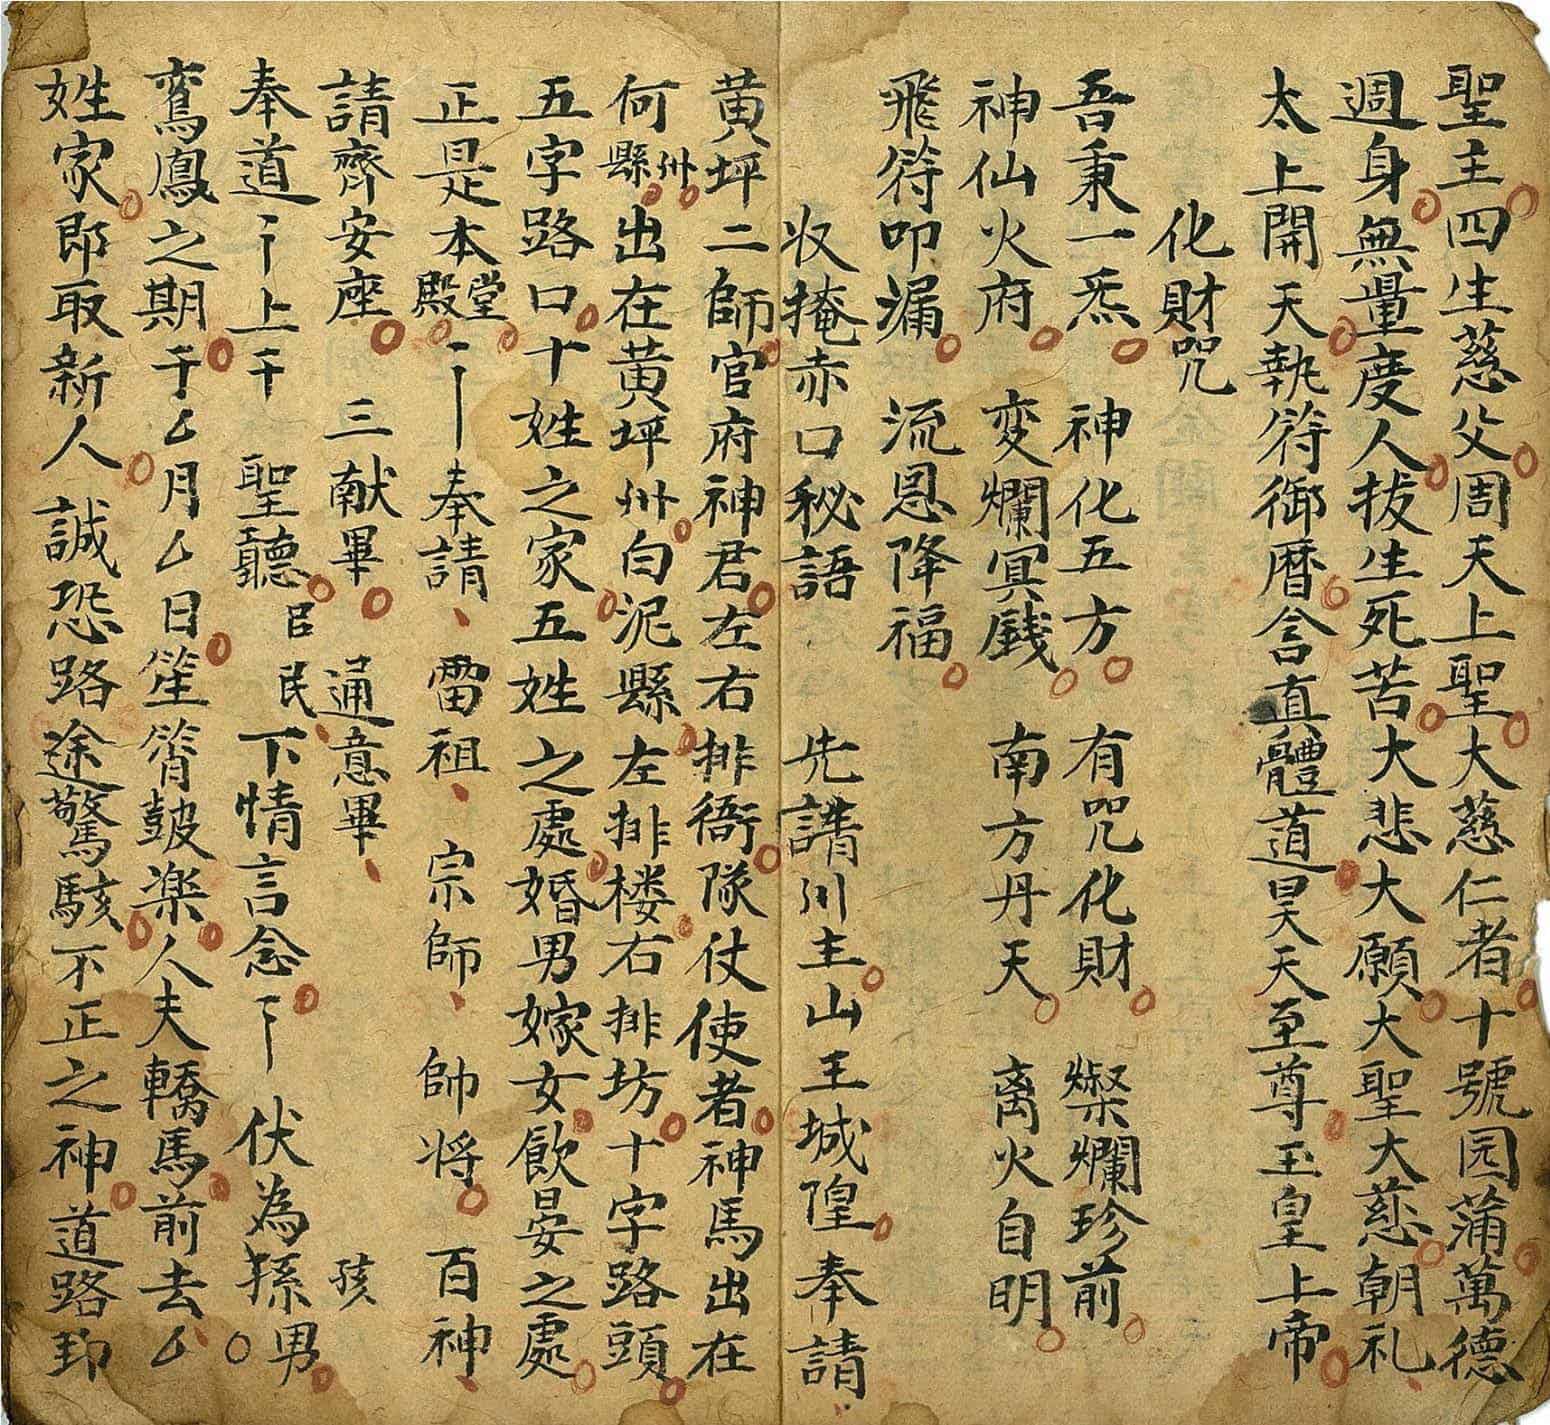 聖主四生慈父周天上聖大慈仁者十號园蒲萬德
週身無量度人拔生死苦大悲大願大聖大慈朝礼
太上開天執符御暦含真體道昊天至尊玉皇上帝
化財咒
吾秉一炁 神化五方 有咒化財 燦爛珍前
神仙火府 変爛冥戲 南方丹天 离火自明
飛符叩漏 流恩降福
收掩赤口秘語 先請川主山王城隍奉請
黄坪二師官府神君左右排衙隊仗使者神馬出在
何州縣出在黄坪州白泥縣左排楼右排坊十字路頭
五字路口十姓之家五姓之處婚男嫁女飲晏之處
正是本堂殿 奉請、雷祖、宗師、帥将百神、
請齊安座 三献畢 通意畢、 孩
奉道 上干 聖聽臣民、下情言念 伏為孫男
鸾鳳之期于厶月厶日笙簫鼓楽人夫轎馬前去厶
姓家郎取新人誠恐路途驚駭不正之神道路卸